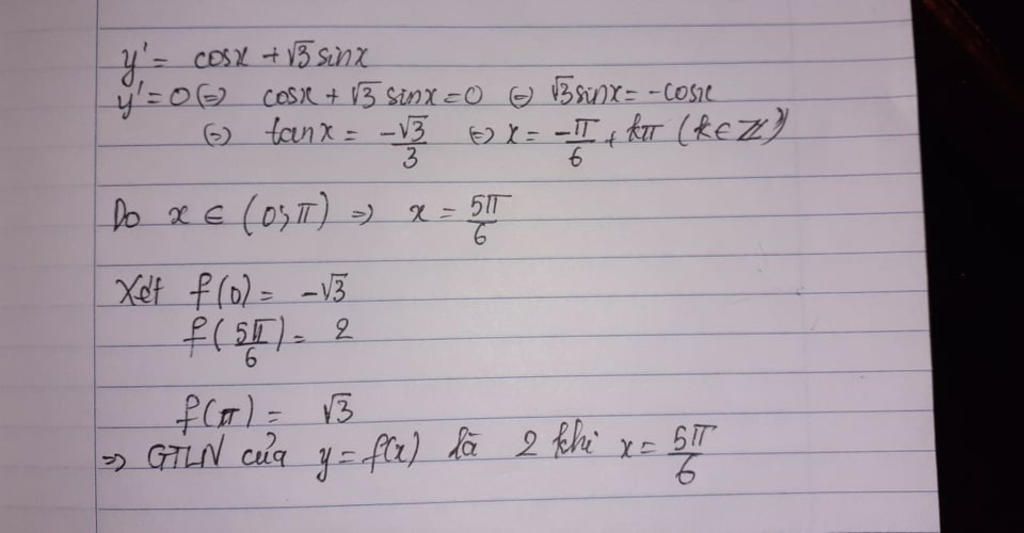 y' = cosx + √3 sinx
y' = 0 (=) cosx + √3 sinx = 0 (=) √3sinx = -cosx
(=) tanx = -√3/3 (=) x = -π/6 + kπ (k ∈ Z)
Do x ∈ (0; π) => x = 5π/6
Xét f(0) = -√3
f(5π/6) = 2
f(π) = √3
=> GTLN của y = f(x) là 2 khi x = 5π/6